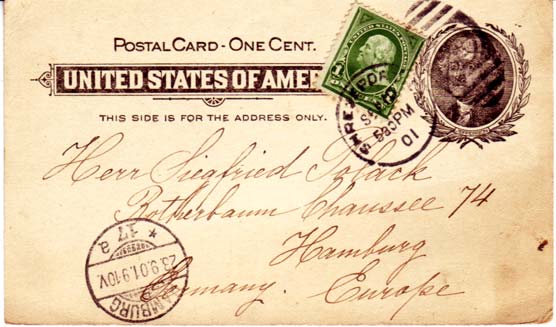 POSTAL CARD - ONE CENT.
UNITED STATES OF AMER
THIS SIDE IS FOR THE ADDRESS ONLY.
SHREVEPOR
530PM
01
Herr Siegfried Polack
Rotherbaum Chaussee 74
Hamburg
Germany. Europe
* 17 a
23.9.01.9-10V.
MBURG